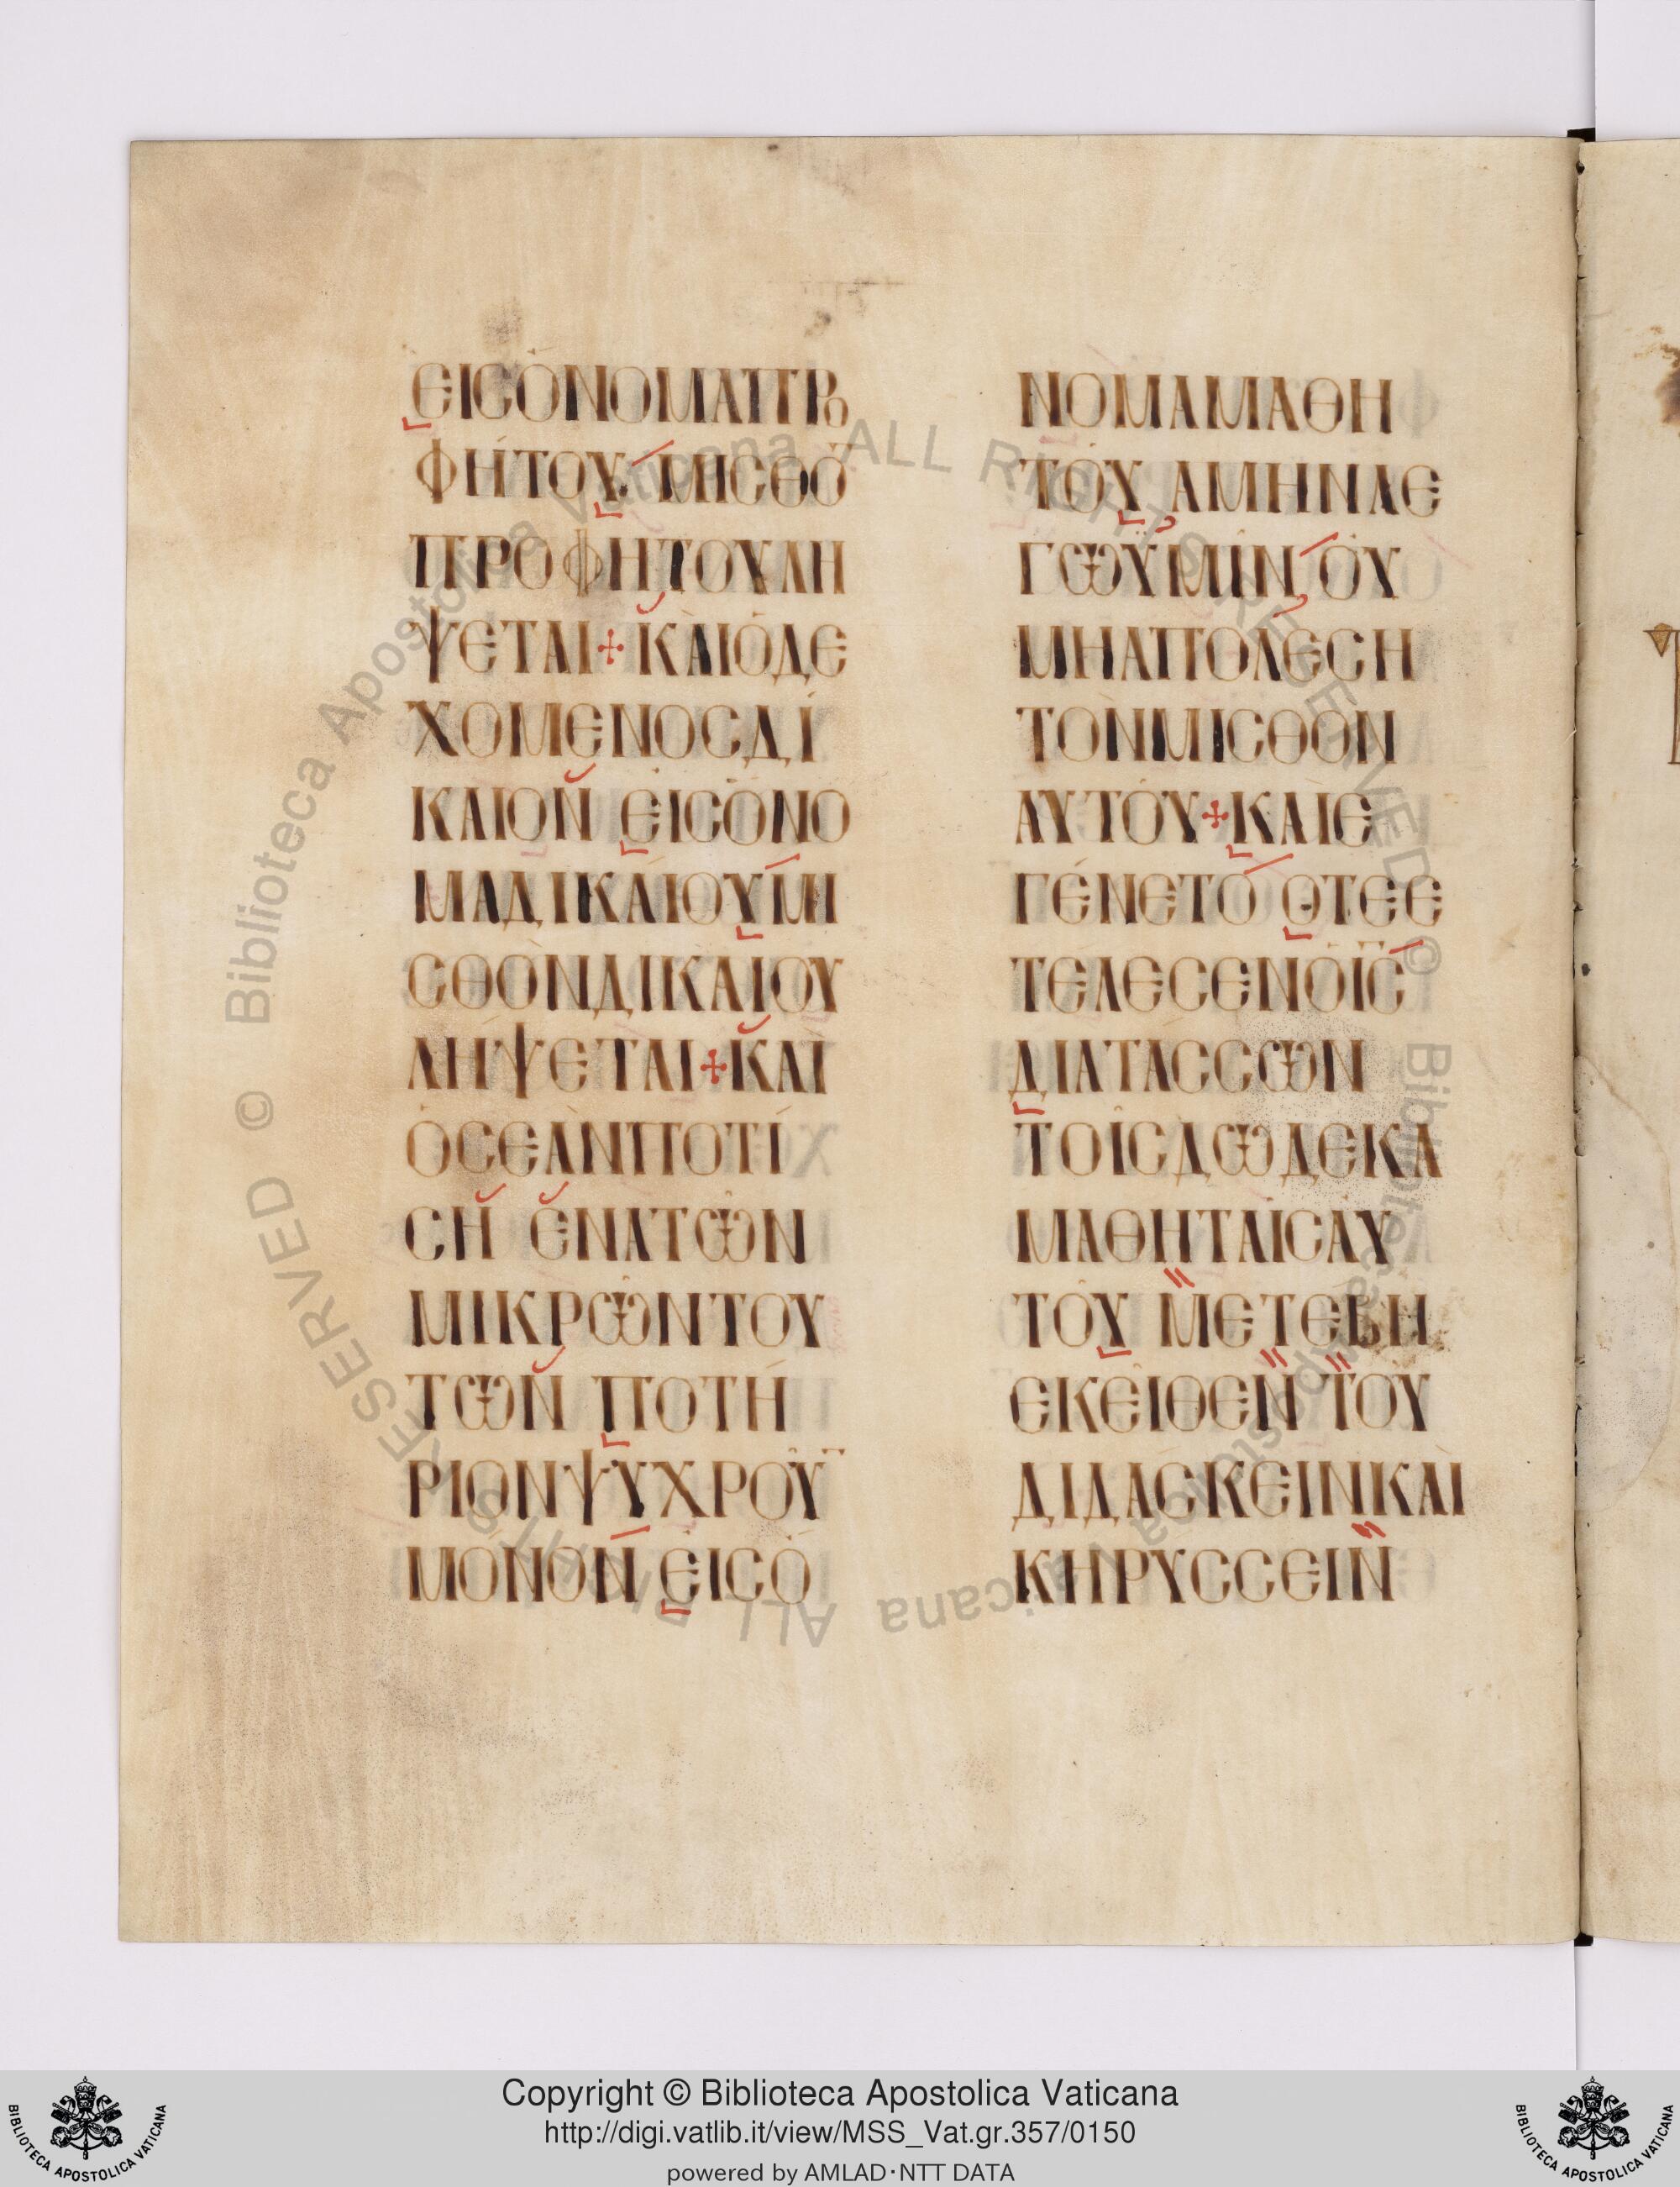 ΕΙϹΟΝΟΜΑΠΡΟ
ΦΗΤΟΥ. ΜΙϹΘΟ̅
ΠΡΟΦΗΤΟΥΛΗ
ΨΕΤΑΙ+ΚΑΙΟΔΕ
ΧΟΜΕΝΟϹΔΙ
ΚΑΙΟΝ ΕΙϹΟΝΟ
ΜΑΔΙΚΑΙΟΥΜΙ
ϹΘΟΝΔΙΚΑΙΟΥ
ΛΗΨΕΤΑΙ+ΚΑΙ
ΟϹΕΑΝΠΟΤΙ
ϹΗ ΕΝΑΤΩΝ
ΜΙΚΡΩΝΤΟΥ
ΤΩΝ ΠΟΤΗ
ΡΙΟΝΨΥΧΡΟΥ
ΜΟΝΟΝ ΕΙϹΟ
ΝΟΜΑΜΑΘΗ
ΤΟΥ ΑΜΗΝΛΕ
ΓΩΥΜΙΝ ΟΥ
ΜΗΑΠΟΛΕϹΗ
ΤΟΝΜΙϹΘΟΝ
ΑΥΤΟΥ+ΚΑΙΕ
ΓΕΝΕΤΟ ΟΤΕΕ
ΤΕΛΕϹΕΝΟΙ̅Ϲ̅
ΔΙΑΤΑϹϹΩΝ
ΤΟΙϹΔΩΔΕΚΑ
ΜΑΘΗΤΑΙϹΑΥ
ΤΟΥ ΜΕΤΕΒΗ
ΕΚΕΙΘΕΝ ΤΟΥ
ΔΙΔΑϹΚΕΙΝΚΑΙ
ΚΗΡΥϹϹΕΙΝ
© Biblioteca Apostolica Vaticana ALL RIGHTS RESERVED © Biblioteca Apostolica Vaticana ALL RIGHTS RESERVED
Copyright © Biblioteca Apostolica Vaticana
http://digi.vatlib.it/view/MSS_Vat.gr.357/0150
powered by AMLAD·NTT DATA
BIBLIOTECA APOSTOLICA VATICANA
BIBLIOTECA APOSTOLICA VATICANA